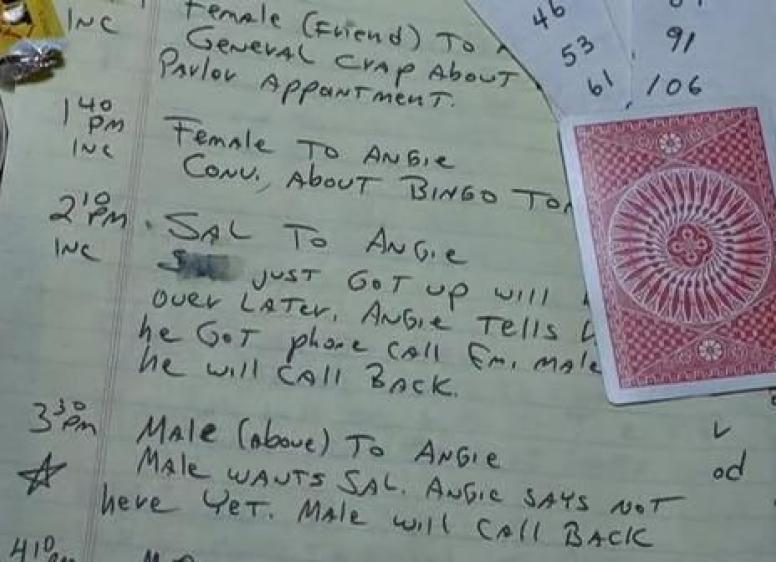 INC
Female (Friend) To
General Crap About
Parlor Appointment.
1 40 PM
INC
Female To Angie
Conv. About Bingo
2 10 PM
INC
Sal To Angie
Just Got up will
over Later. Angie Tells
he Got phone Call Fm. Male
he will Call Back.
3 30 PM
Male (above) To Angie
Male wants Sal. Angie says not
here Yet. Male will Call Back
4 10
46
53
61
91
106
od